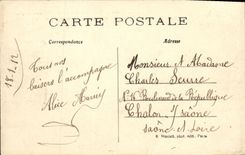 CARTE POSTALE
Correspondance
Adresse
18-1-12
Tous nos
baisers t'accompagne
Alice
Monsieur et Madame
Charles
Boulevard de la République
Chalon s/ Saône
Saône et Loire